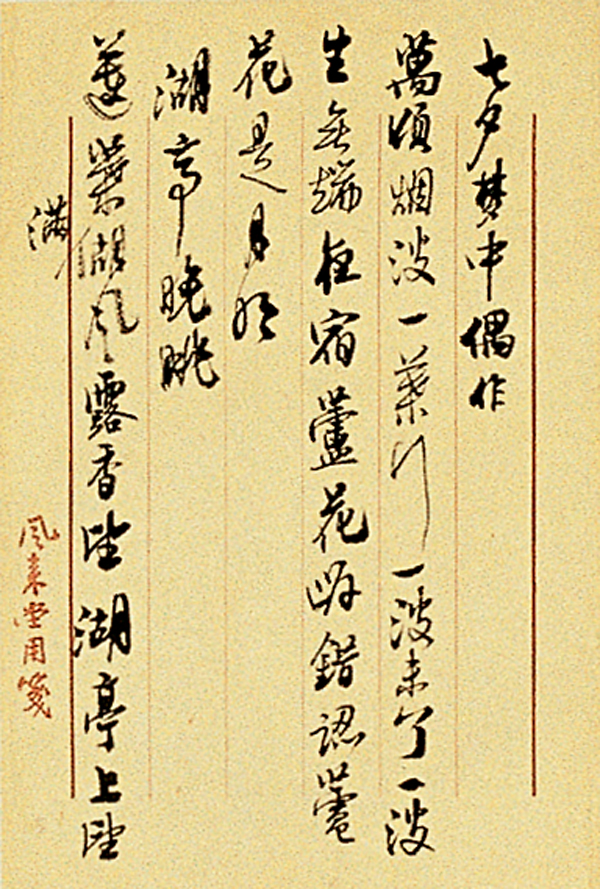 七夕梦中偶作
萬頃烟波一葉行一波未了一波
生無端夜宿蘆花畔錯認蘆
花是月明
湖亭晚眺
蓮葉湖風露香望湖亭上望
滿
風來堂用箋